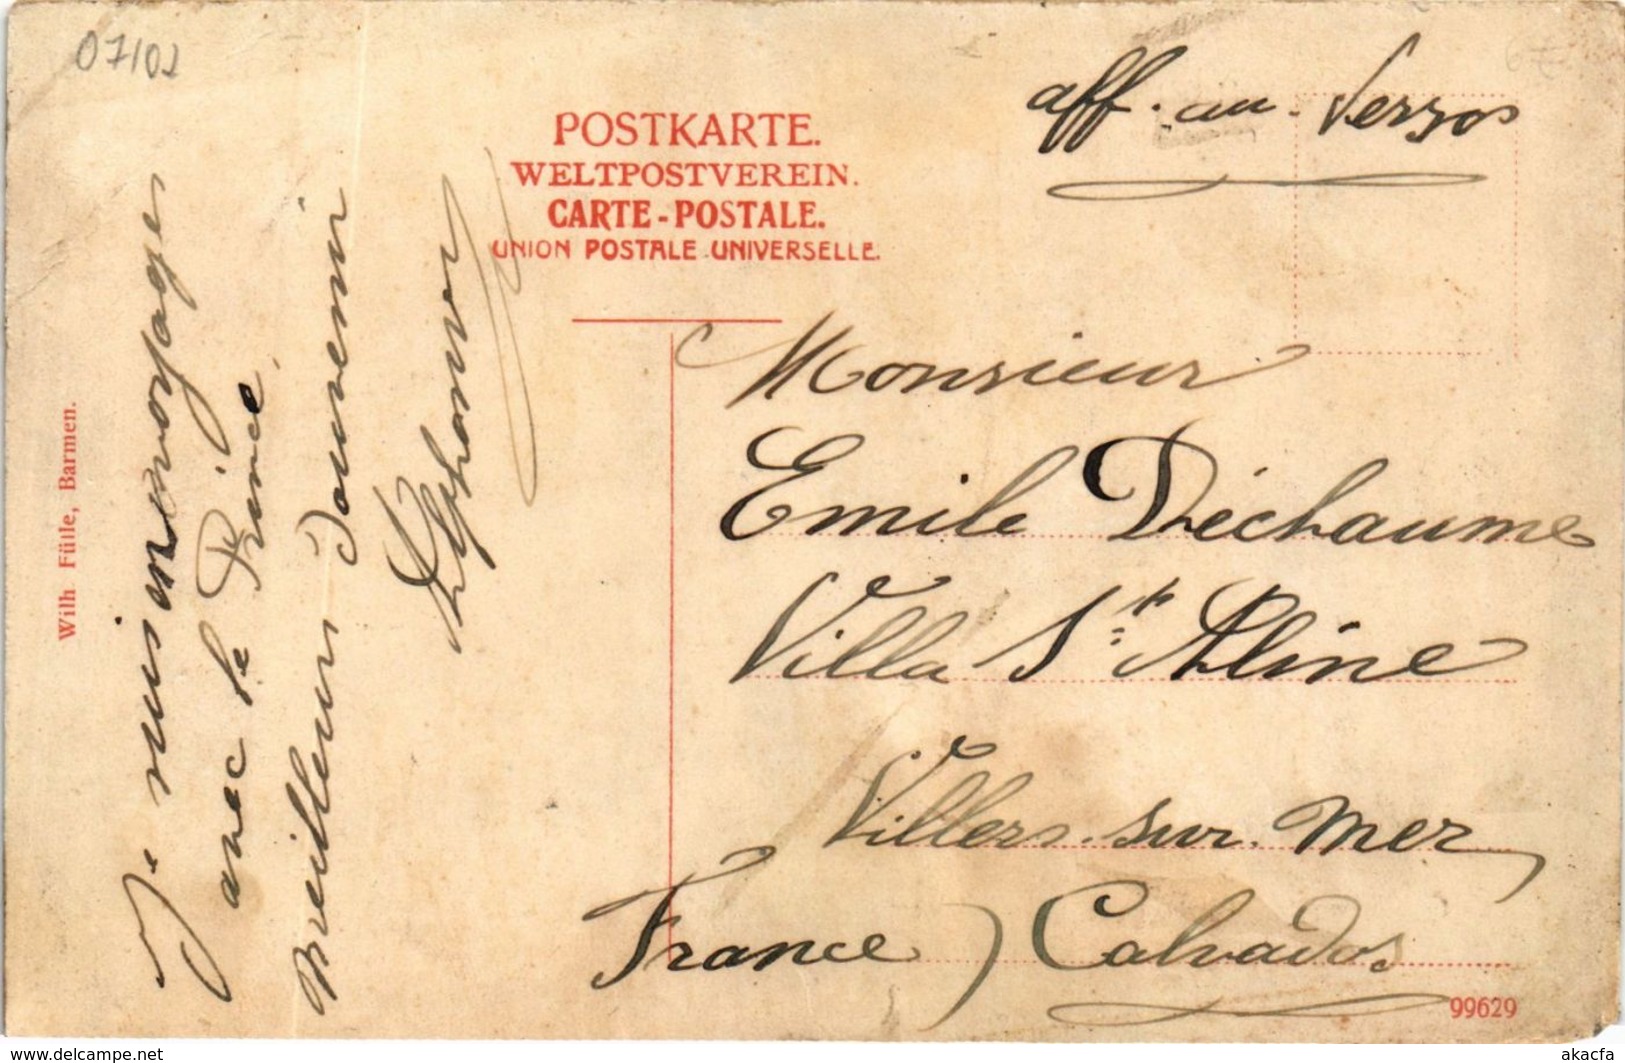 07101
aff. au. Verso
POSTKARTE.
WELTPOSTVEREIN.
CARTE-POSTALE.
UNION POSTALE UNIVERSELLE.
Wilh Fülle, Barmen.
Je suis en voyages
avec le Prince
Meilleurs souvenir
Monsieur
Emile Déchaume
Villa Ste Aline
Villers. sur. Mer
France) Calvados
99629
www.delcampe.net
akacfa